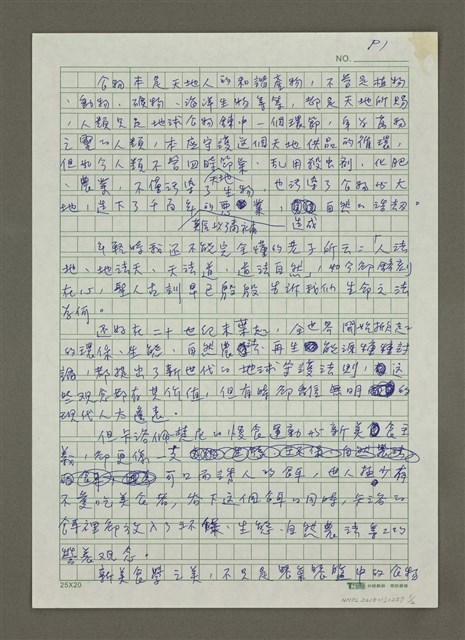 NO.
P1
食物本是天地人的和諧產物，不管是植物
、動物、礦物、海洋生物等等，都是天地所賜
，人類只在地球食物鍊中一個環節，身為萬物
之靈的人類，本應守護這個天地供品的循環，
但如今人類不管四時節氣、亂用殺虫劑、化肥
、農藥，不僅污染了天地生物，也污染了食物世大
地，造下了千百年的惡業，造成自然的浩劫。
難以彌補
年輕時我還不能完全懂的老子所云：「人法
地、地法天、天法道、道法自然」，如今卻銘刻
在心，聖人古訓早已殷殷告訴我們生命之法
為何。
還好在二十世紀末葉起，全世界開始掀起
的環保、生態、自然農法、再生能源種種討
論，都提出了新世代的地球守護法則，這
些觀念都有其價值，但有時卻無明的
現代人太
但卡洛佩提尼的慢食運動的新美食主
義，卻更像一支
可口而誘人的餌，世人極少有
不愛吃美食者，吞下這個餌的同時，卡洛的
餌裡卻放入了環保、生態、自然農法等等的
營養觀念。
新美食學之美，不只是餐桌餐盤中的食物
25X20
NMTL20150110257